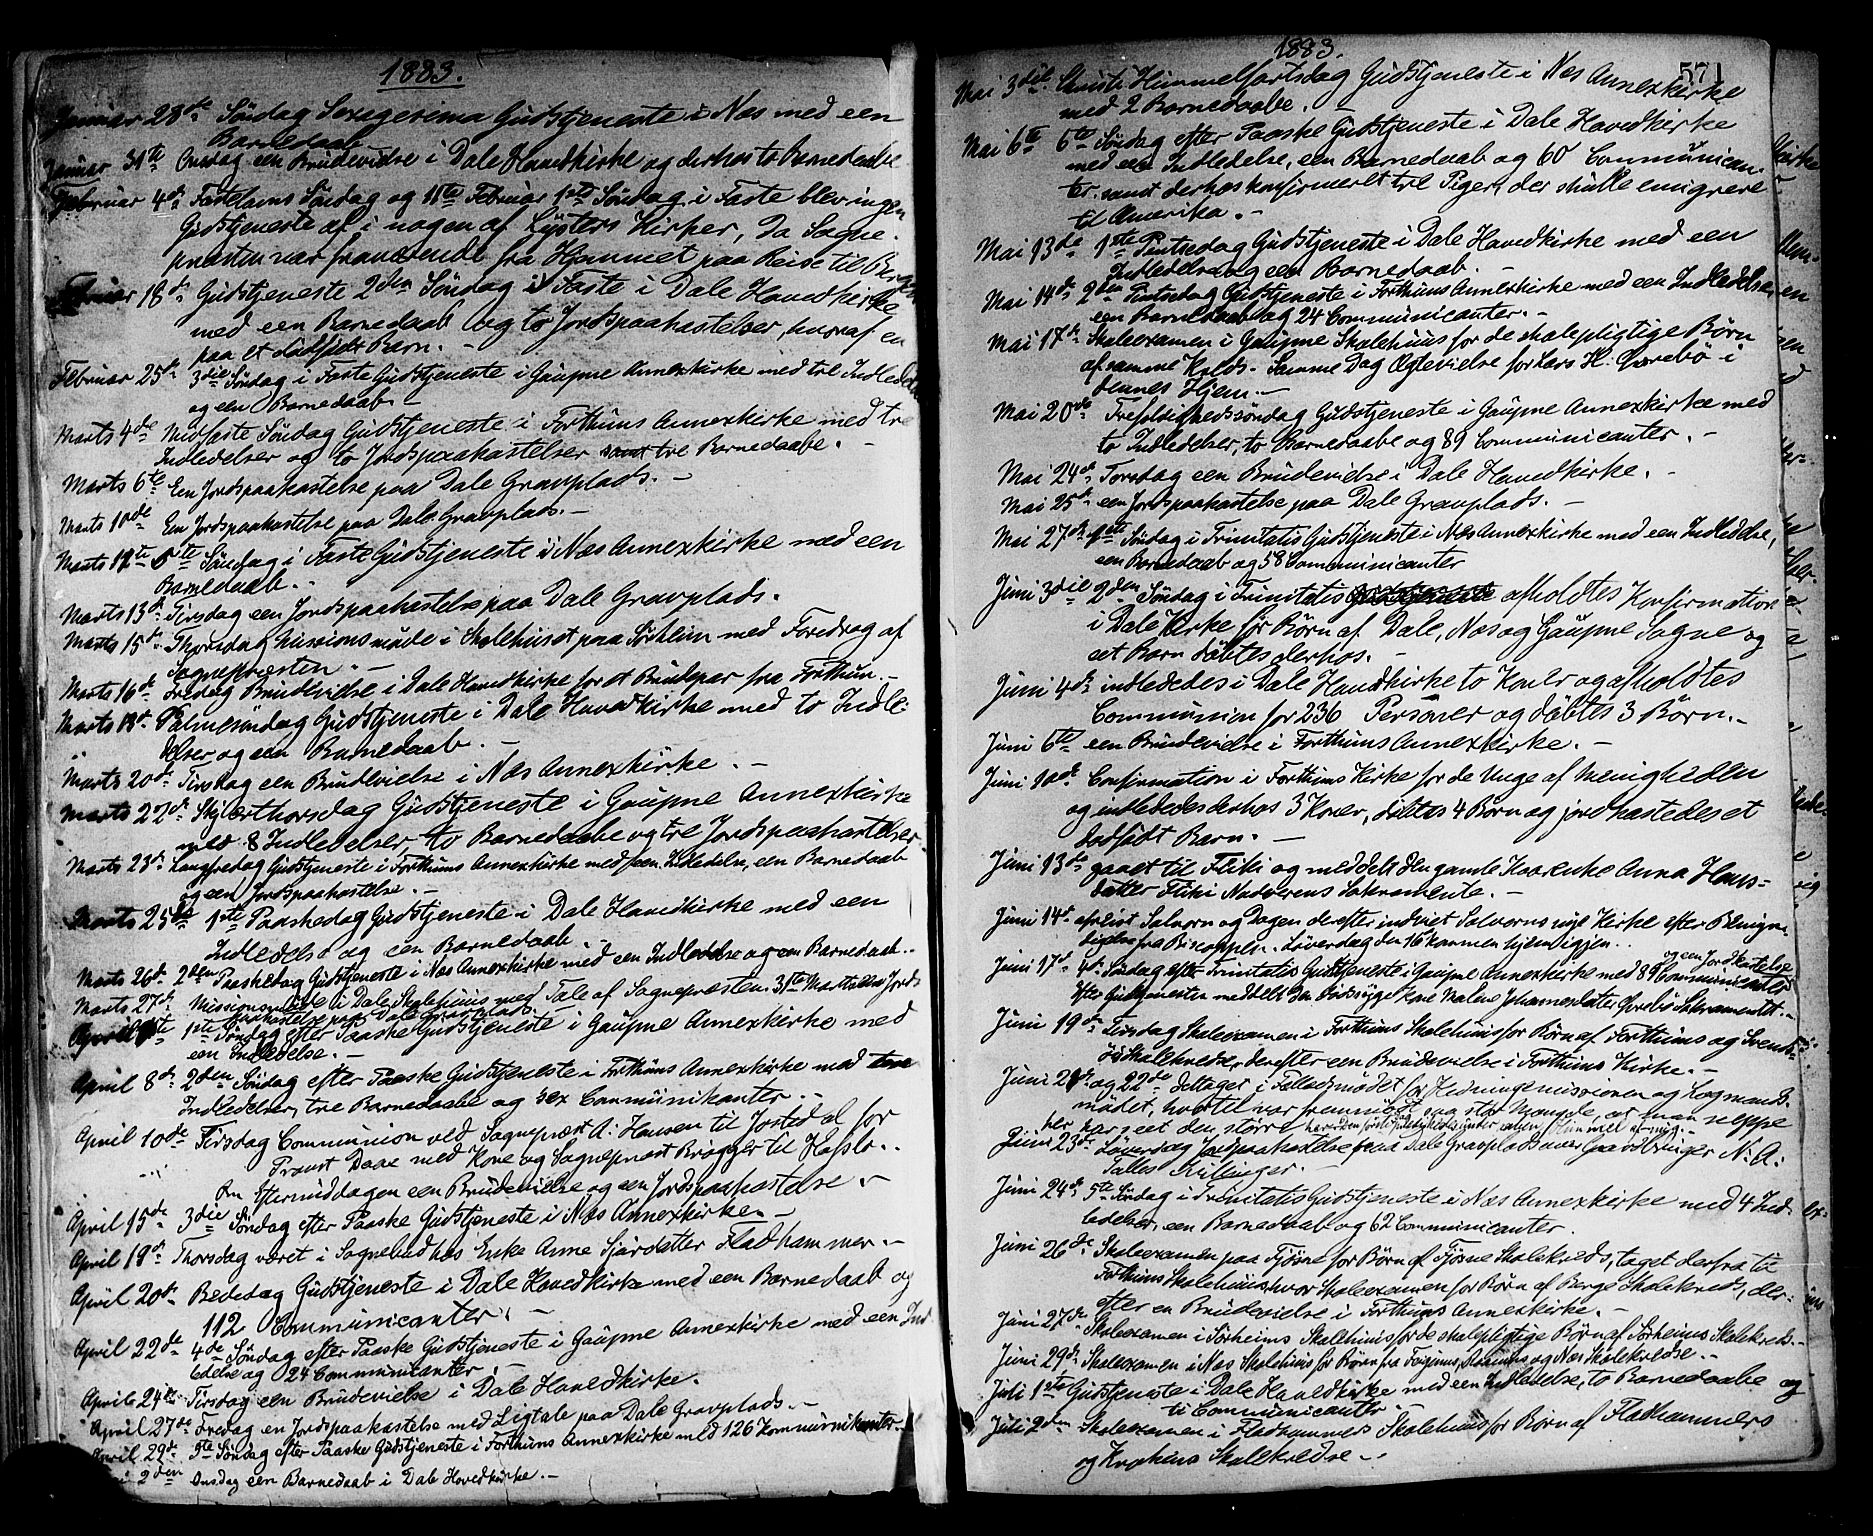 1883.
Januar 28de Söndag Sexagesima Gudstjeneste i Næs med een
Barnedaab
Januar 31te Onsdag een Brudevielse i Dale Hovedkirke og derhos to Barnedaabe
Februar 4de Fastelavns Söndag og 11te Februar 1ste Söndag i Faste blev ingen
Gudstjeneste af i nogen af Lysters Kirker, da Sogne-
præsten var fraværende fra Hjemmet paa Reise til Bergen
Februar 18de Gudstjeneste 2den Söndag i Faste i Dale Hovedkirke
med een Barnedaab og to Jordspaakastelser, hvoraf en
paa et dødfødt Barn. -
Februar 25de 3die Söndag i Faste Gudstjeneste i Gaupne Annexkirke med tre Indledelser
og een Barnedaab. -
Marts 4de Midfaste Söndag Gudstjeneste i Forthuns Annexkirke med tre
Indledelser og to Jordspaakastelser samt tre Barnedaabe. -
Marts 6te Een Jordspaakastelse paa Dale Gravplads. -
Marts 10de Een Jordspaakastelse paa Dale Gravplads. -
Marts 11te 5te Söndag i Faste Gudstjeneste i Næs Annexkirke med een
Barnedaab. -
Marts 13de Tirsdag een Jordspaakastelse paa Dale Gravplads.
Marts 15de Thorsdag Missionsmøde i Skolehuset paa Sörheim med Foredrag af
Sognepræsten. -
Marts 16de Fredag Brudevielse i Dale Hovedkirke for et Brudepar fra Forthun. -
Marts 18de Palmesöndag Gudstjeneste i Dale Hovedkirke med to Indle-
delser og een Barnedaab. -
Marts 20de Tirsdag een Brudevielse i Næs Annexkirke. -
Marts 22de Skjærthorsdag Gudstjeneste i Gaupne Annexkirke
med 8 Indledelser, to Barnedaabe og tre Jordspaakastelser
Marts 23de Langfredag Gudstjeneste i Forthuns Annexkirke med een Indledelse, een Barnedaab
og een Jordspaakastelse. -
Marts 25de 1ste Paaskedag Gudstjeneste i Dale Hovedkirke med een
Indledelse og een Barnedaab. -
Marts 26de 2den Paaskedag Gudstjeneste i Næs Annexkirke med een Indledelse og een Barnedaab. -
Marts 27de Missionsmøde i Dale Skolehuus med Tale af Sognepræsten. 31te Marts een Jords-
paakastelse paa Dale Gravplads.
April 1ste 1ste Söndag efter Paaske Gudstjeneste i Gaupne Annexkirke med
een Indledelse. -
April 8de 2den Söndag efter Paaske Gudstjeneste i Forthuns Annexkirke med tre
Indledelser, tre Barnedaabe og sex Communikanter. -
April 10de Tirsdag Communion ved Sognepræst A: Hansen til Jostedal for
Provst Daae med Kone og Sognepræst Brøgger til Hafslo. -
Om Eftermiddagen een Brudevielse og een Jordspaakastelse. -
April 15de 3die Söndag efter Paaske Gudstjeneste i Næs Annexkirke. -
April 19de Thorsdag været i Sognebud hos Enke Anne Sjurdatter Fladhammer. -
April 20de Bededag Gudstjeneste i Dale Hovedkirke med een Barnedaab og
112 Communicanter. -
April 22de 4de Söndag efter Paaske Gudstjeneste i Gaupne Annexkirke med een Ind
ledelse og 24 Communicanter
April 24de Tirsdag een Brudevielse i Dale Hovedkirke.
April 27de Fredag en Jordspaakastelse med Ligtale paa Dale Gravplads. -
April 29de 5te Söndag efter Paaske Gudstjeneste i Forthuns Annexkirke med 126 Kommunikanter
2den Onsdag een Barnedaab i Dale Hovedkirke. -
1883.
571
Mai 3die Christi Himmelfartsdag Gudstjeneste i Næs Annexkirke
med 2 Barnedaabe. -
Mai 6te 6te Söndag efter Paaske Gudstjeneste i Dale Hovedkirke
med een Indledelse, een Barnedaab og 60 Communican-
ter samt derhos konfirmeret tre Piger, der skulle emigrere
til Amerika. -
Mai 13de 1ste Pintsedag Gudstjeneste i Dale Hovedkirke med een
Indledelse og een Barnedaab. -
Mai 14de 2den Pintsedag Gudstjeneste i Forthuns Annexkirke med een Indledelse,
een Barnedaab og 24 Communicanter. -
Mai 17de Skoleexamen i Gaupne Skolehuus for de skolepligtige Børn
af samme Kreds. - Samme Dag Ægtevielse for Lars H. Qvrebö i
dennes Hjem. -
Mai 20de Trefoldighedssöndag Gudstjeneste i Gaupne Annexkirke med
to Indledelser, to Barnedaabe og 89 Communicanter. -
Mai 24de Torsdag een Brudevielse i Dale Hovedkirke. -
Mai 25de een Jordspaakastelse paa Dale Gravplads. -
Mai 27de 1ste Söndag i Trinitatis Gudstjeneste i Næs Annexkirke med een Indledelse,
een Barnedaab og 58 Communicanter
Juni 3die 2den Söndag i Trinitatis afholdtes Konfirmation
i Dale Kirke for Børn af Dale, Næs og Gaupne Sogne og
eet Barn döbtes derhos. -
Juni 4de indlededes i Dale Hovedkirke to Koner og afholdtes
Communion for 236 Personer og døbtes 3 Börn. -
Juni 6te een Brudevielse i Forthuns Annexkirke. -
Juni 10de Confirmation i Forthuns Kirke for de Unge af Menigheden
og indlededes derhos 3 Koner, døbtes 4 Børn og jordkastedes et
dødfødt Barn. -
Juni 13de gaaet til Fliki og meddelt den gamle Kaarenke Anna Hans-
datter Fliki Nadverens Sakramente. -
Juni 14de afreist Solvorn og Dagen derefter indviet Solvorns nye Kirke efter Bemyn-
digelse fra Biscoppen. Löverdag den 16 kommen hjem igjen. -
Juni 17de 4de Söndag efter Trinitatis Gudstjeneste i Gaupne Annexkirke med 89 Communicanter
og een Jordkastelse
Efter Gudstjenesten meddelt den dödssyge Kone Malene Johannesdatter Qvrebö Sakramentet. -
Juni 19de Tirsdag Skoleexamen i Forthuns Skolehuus for Börn af Forthuns og Svends-
øi Skolekredse, derefter een Brudevielse i Forthuns Kirke. -
Juni 21de og 22de deltaget i Fellesmødet for Hedningemissionen og Sogneands-
mödet, hvortil var fremmødt en stor Mængde, og man neppe
her har seet den större
Juni 23de Löverdag Jordspaakastelse paa Dale Gravplads over Gaardbruger N. A:
Talles Killinger. -
Juni 24de 5te Söndag i Trinitatis Gudstjeneste i Næs Annexkirke med 4 Ind-
ledelser, een Barnedaab og 62 Communicanter.
Juni 26de Skoleexamen paa Fjösne for Børn af Fjösne Skolekreds, taget derfra til
Forthuns Skolehuus, hvor Skoleexamen for Börn af Berge Skolekreds, der-
efter en Brudevielse i Forthuns Annexkirke. -
Juni 27de Skoleexamen i Sörheims Skolehuus for de skolepligtige Börn af Sörheims Skolekreds. -
Juni 29de Skoleexamen i Næs Skolehuus for Børn fra og Næs Skolekredse. -
Juli 1ste Gudstjeneste i Dale Hovedkirke med een Indledelse, to Barnedaabe og
ti Communicanter. -
Juli 2den Skoleexamen i Fladhammers Skolehuus for Børn af Fladhammers
og Krokens Skolekredse. -